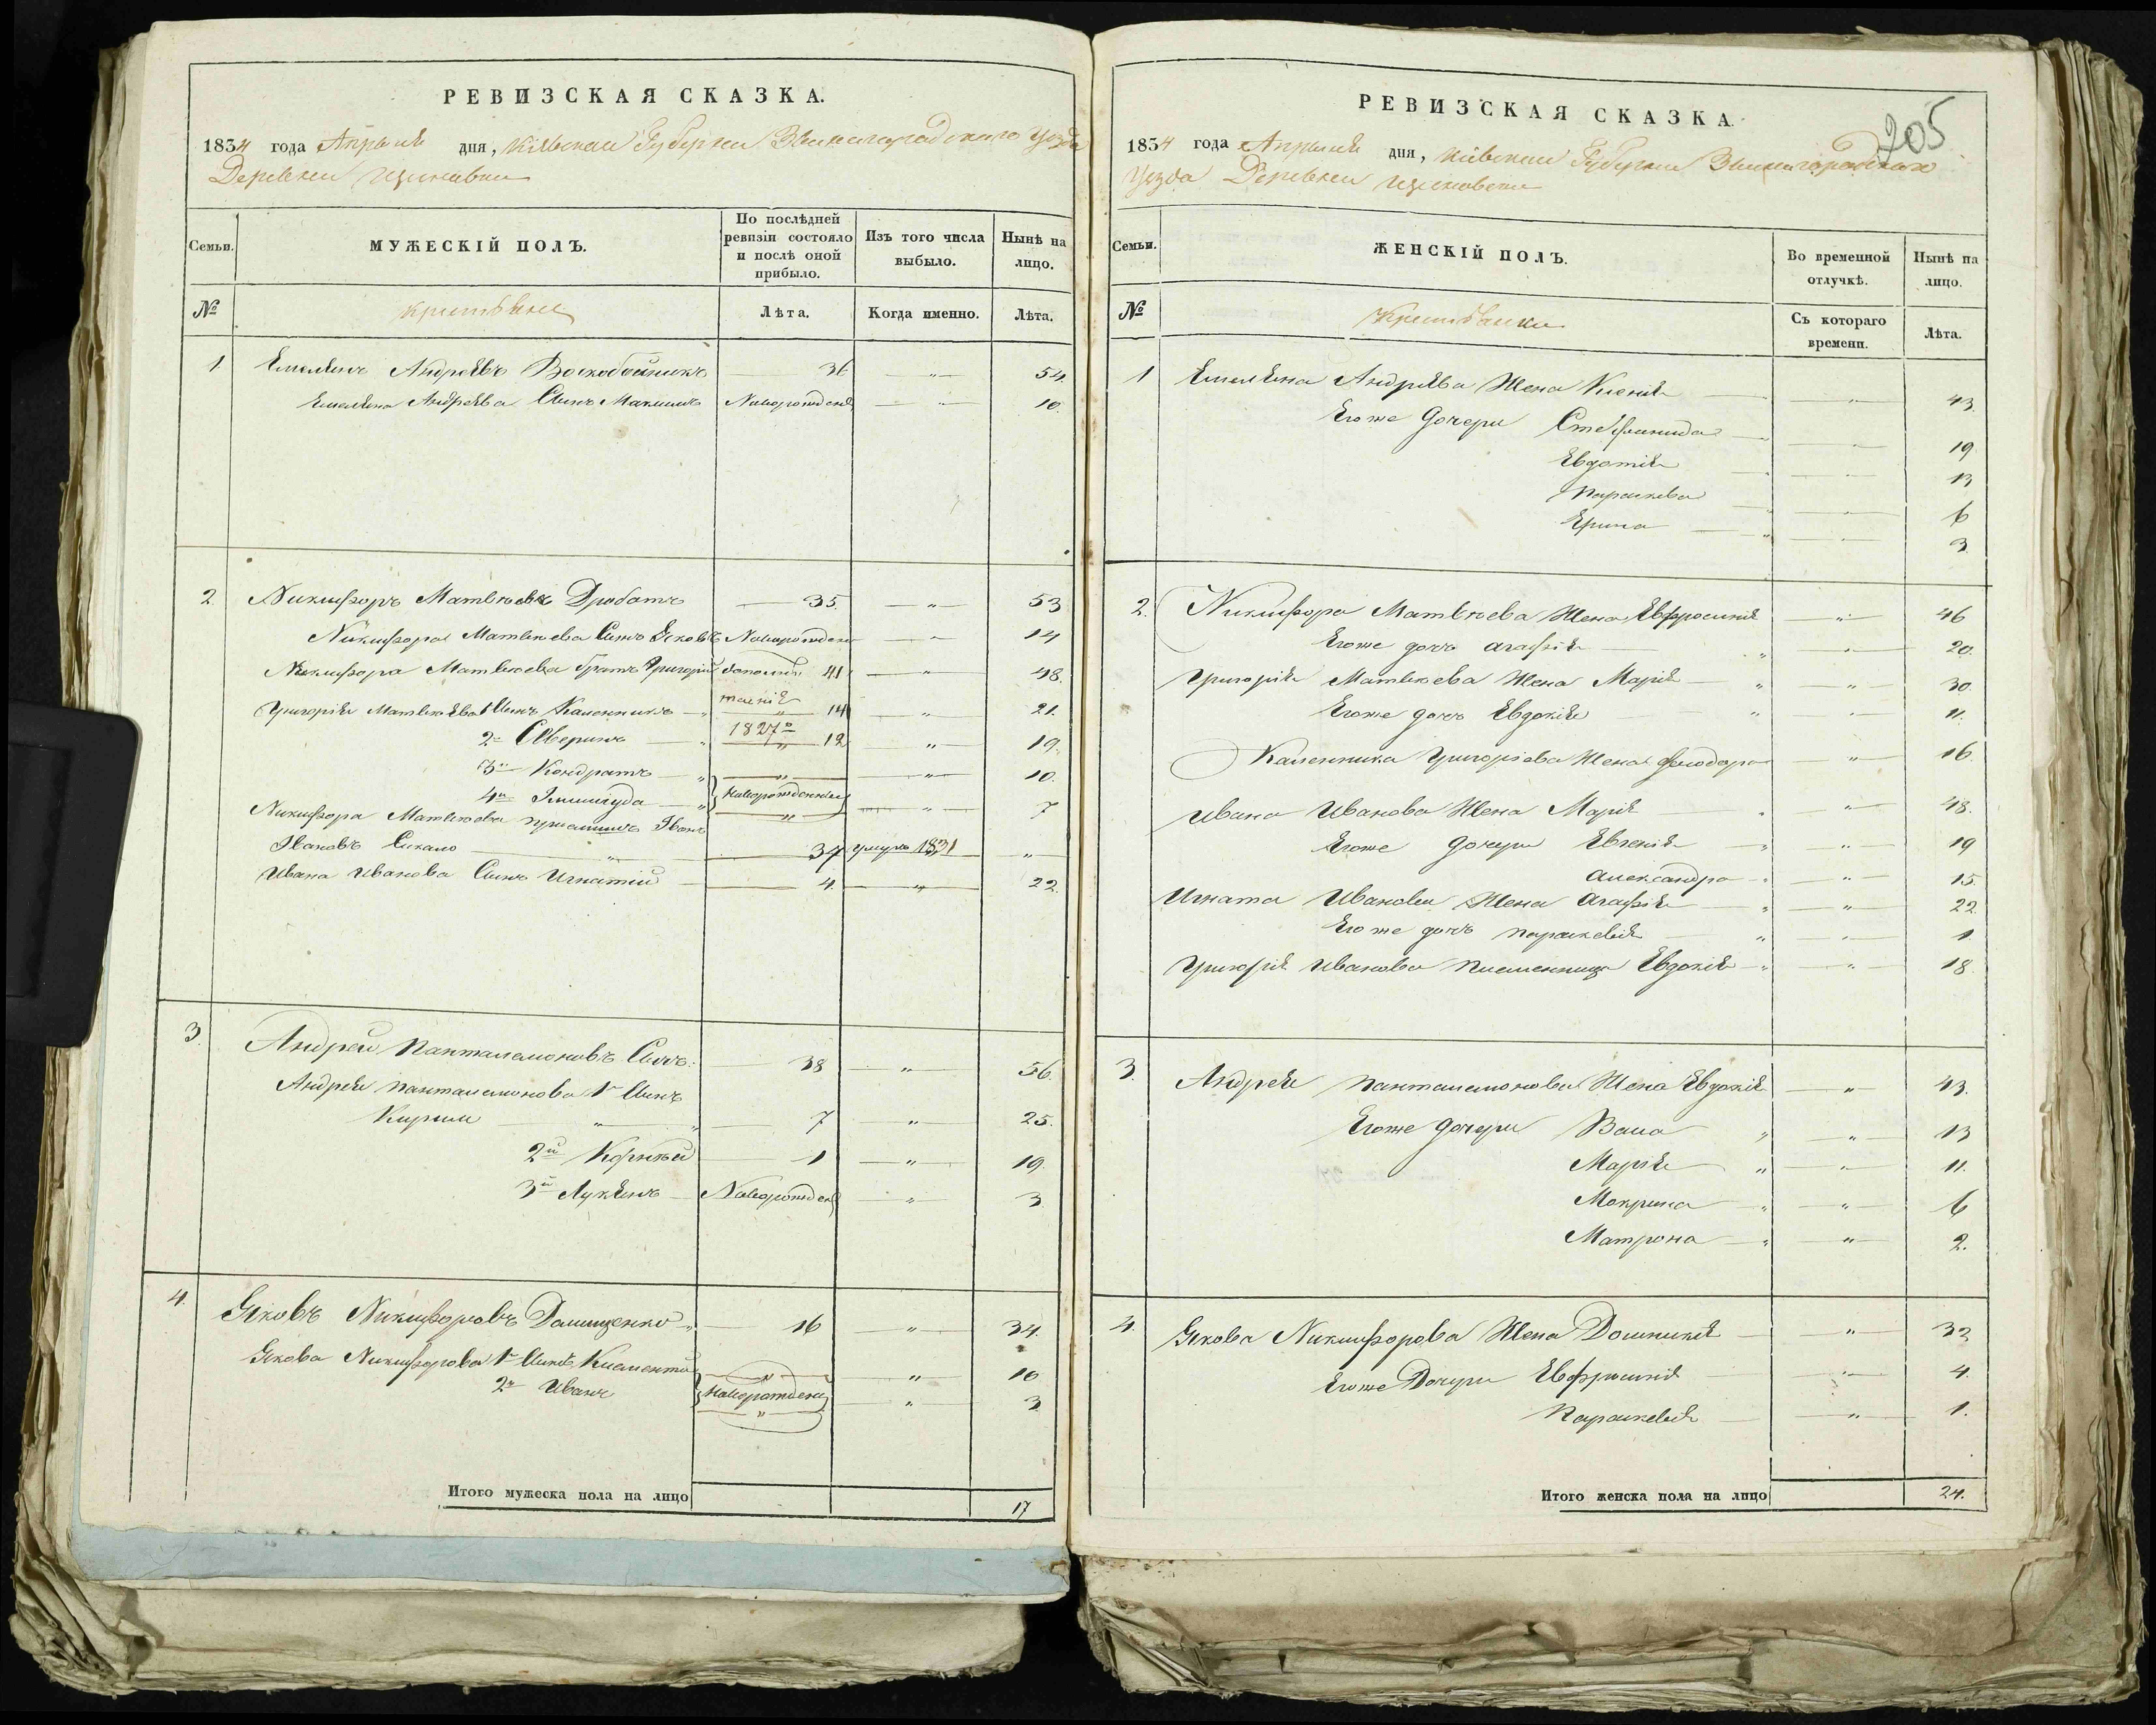 РЕВИЗСКАЯ СКАЗКА.
1834 года Апрыля дня, Кіевской Губерніи Звенигородского Уезда
Деревни
Семьи. МУЖЕСКІЙ ПОЛЪ. По послѣдней ревизіи состояло и послѣ оной прибыло. Изъ того числа выбыло. Нынѣ на лицо.
№ крестьяне Лѣта. Когда именно. Лѣта.
1 Емельянъ Андреевъ Воскобойникъ 36 " 54.
Емеляна Андреева Сынъ Максимъ Новорожден " 10.
2. Никифоръ Матвѣевъ Драбатъ 35. " 53
Никифора Матвѣева Сынъ Яковъ Новорожден " 14
Никифора Матвѣева Братъ Григорій 41 " 48.
Григорія Матвѣева 1 Сынъ Каленникъ " 14 " 21.
1827го
2й Аверинъ " " 12 " 19.
3й Кондратъ " " " 10.
4й " Новорожденны " 7
Никифора Матвѣева Иванъ
Ивановъ Сикало " 34 умръ 1831 "
Ивана Иванова Сынъ Игнатій 4. " 22.
3. Андрей Панталемоновъ Сынъ. 38 " 56.
Андрея Панталемонова 1й Сынъ
Кирило " " 7 " 25.
2й Корнѣй 1 " 19.
3й Лукянъ Новорожден " 3
4. Яковъ Никифоровъ " 16 " 34.
Якова Никифорова 1й Сынъ Климентій " " 10
2й Иванъ Новорожден " 3
"
Итого мужеска пола на лицо 17
205
РЕВИЗСКАЯ СКАЗКА.
1834 года Апрыля дня, Кіевской Губерніи Звенигородского
Уезда Деревни
Семьи. ЖЕНСКІЙ ПОЛЪ. Во временной отлучкѣ. Нынѣ на лицо.
№ Крестьянки Съ котораго времени. Лѣта.
1 Емеляна Андреева Жена Ксенія " 43.
Его же Дочери Стефанида " " 19
Евдотія " " 13
Параскева " " 6
Ерина " " 3
2. Никифора Матвѣева Жена Евфросинія " 46
Его же дочь Агафія " " 20.
Григорія Матвѣева Жена Марія " " 30.
Его же дочь Евдокія " " 11.
Каленника Григорiева Жена Феодора " 16.
Ивана Иванова Жена Марія " " 48.
Его же Дочери Евгенія " " 19
Александра " " 15.
Игната Иванова Жена Агафія " " 22.
Его же дочь Параскевія " " 1
Григорія Иванова племенница Евдокія " " 18
3. Андрея Панталемонова Жена Евдокія " 43.
Его же Дочери Васа " " 13
Марія " " 11.
Мокрина " " 6
Матрона " " 2.
4. Якова Никифорова Жена Домникія " 32
Его же Дочери Евфросинія " 4.
Параскевія " 1.
Итого женска пола на лицо 24.